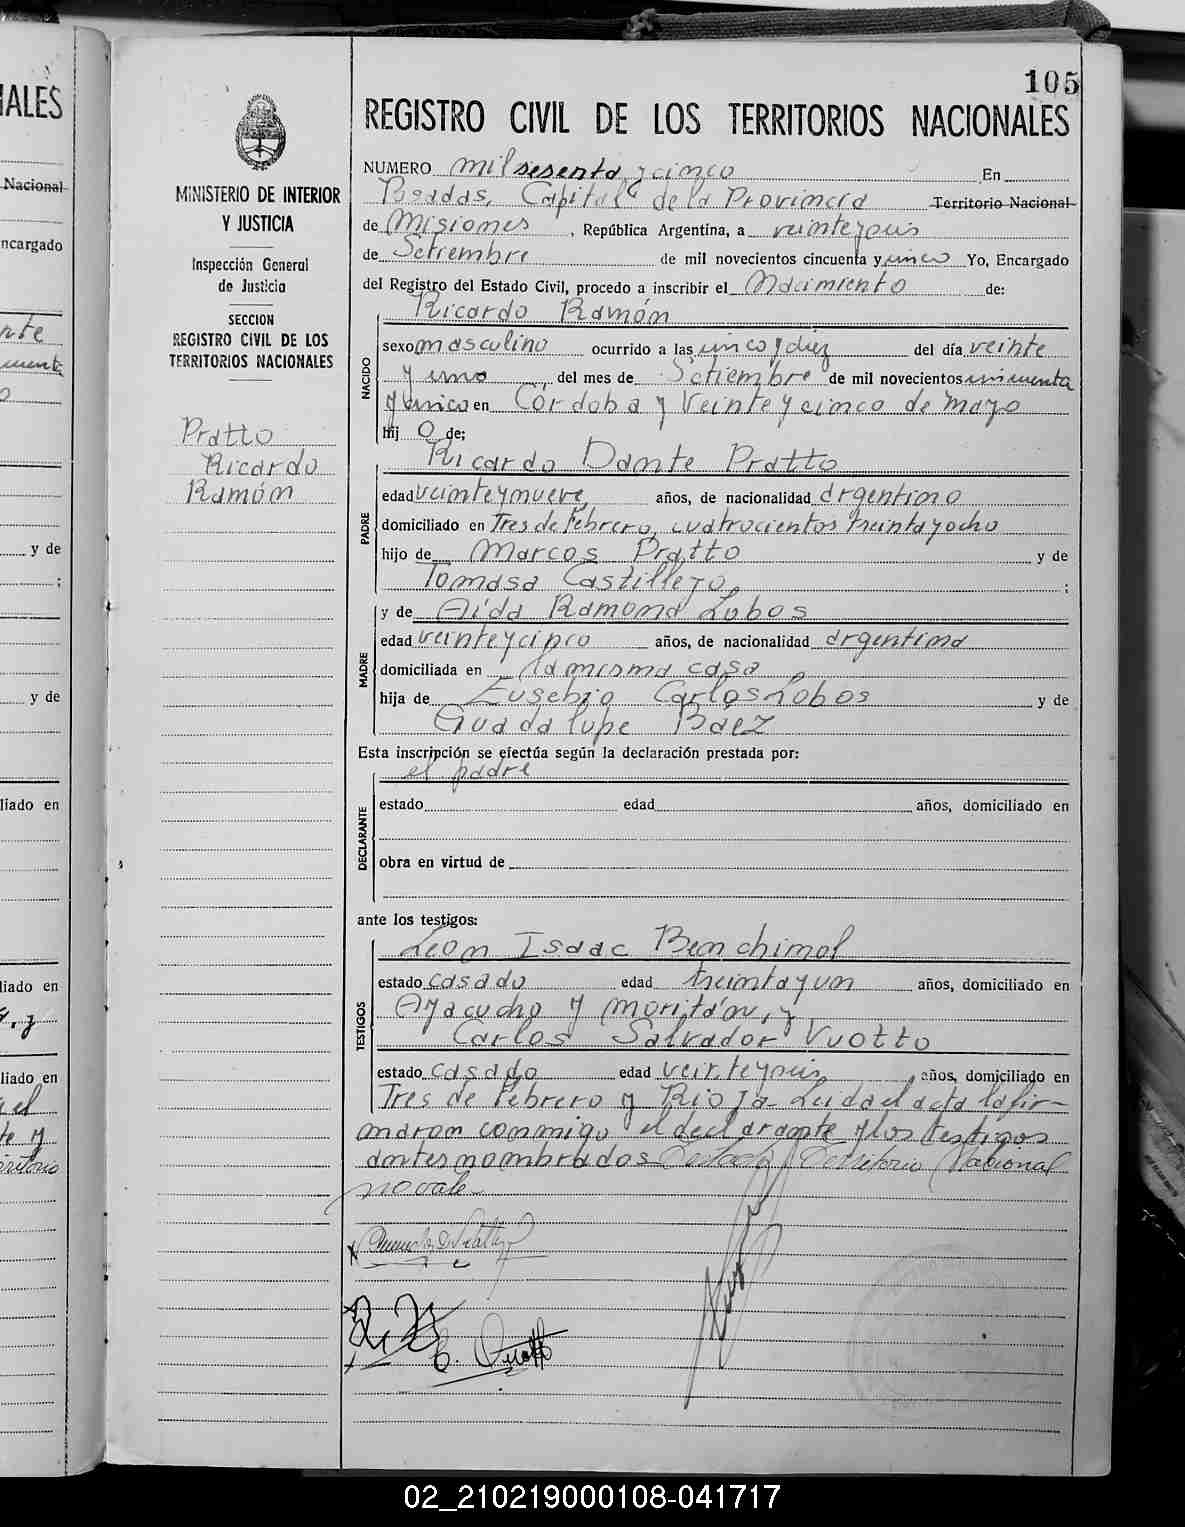 105
IALES
REGISTRO CIVIL DE LOS TERRITORIOS NACIONALES
MINISTERIO DE INTERIOR
Y JUSTICIA
Inspección General
de Justicia
SECCION
REGISTRO CIVIL DE LOS
TERRITORIOS NACIONALES
Pratto
Ricardo
Ramón
NUMERO mil sesenta y cinco En
Posadas, Capital de la Provincia Territorio Nacional
de Misiones, República Argentina, a
de Setiembre de mil novecientos cincuenta y cinco Yo, Encargado
del Registro del Estado Civil, procedo a inscribir el Nacimiento de:
Ricardo Ramón
NACIDO
sexo masculino ocurrido a las cinco y diez del día veinte
y uno del mes de Setiembre de mil novecientos cincuenta
y cinco en Córdoba y Veinte y cinco de mayo
hij o de:
Ricardo Dante Pratto
PADRE
edad veinte y nueve años, de nacionalidad argentino
domiciliado en Tres de Febrero, cuatrocientos treinta y ocho
hijo de Marcos Pratto y de
Tomasa Castillejo ;
y de Aída Ramona Lobos
MADRE
edad veinte y cinco años, de nacionalidad argentina
domiciliada en la misma casa
hija de Eusebio Carlos Lobos y de
Guadalupe Báez
Esta inscripción se efectúa según la declaración prestada por:
el padre
DECLARANTE
estado edad años, domiciliado en
obra en virtud de
ante los testigos:
Leon Isaac Benchimol
TESTIGOS
estado casado edad treinta y un años, domiciliado en
Ayacucho y
Carlos Salvador Vuotto
estado casado edad años, domiciliado en
Tres de Febrero y Rioja. Leida el acta la fir-
maron conmigo el declarante y los testigos
antes nombrados Testado: Territorio Nacional
no vale
C. Vuotto
Nacional
ncargado
y de
;
y de
liado en
liado en
liado en
02_210219000108-041717